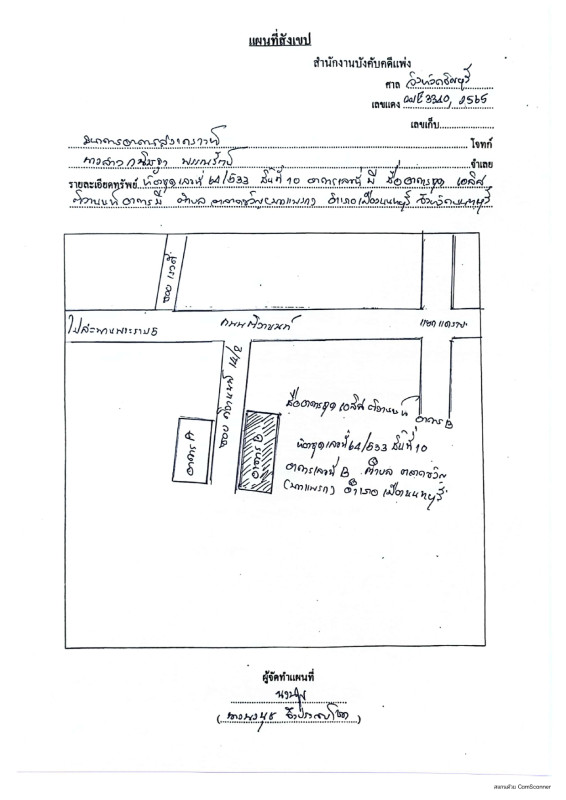 แผนที่สังเขป
สำนักงานบังคับคดีแพ่ง
ศาล จังหวัดนนทบุรี
เลขแดง ผบE 3340, 2565
เลขเก็บ
ธนาคารอาคารสงเคราะห์ โจทก์
นางสาว จำเลย
รายละเอียดทรัพย์ ห้องชุดเลขที่ 64/533 ชั้นที่ 10 อาคารเลขที่ บี ชื่ออาคารชุด เอลิส
ติวานนท์ อาคารบี ตำบล ตลาดขวัญ(บางแพรก) อำเภอเมืองนนทบุรี จังหวัดนนทบุรี
ซอย เรวดี
ไปสะพานพระราม 5
ถนนติวานนท์
แยกแคราย
ซอย ติวานนท์
อาคาร A
อาคาร B
ชื่ออาคารชุด เอลิส ติวานนท์ อาคาร B
ห้องชุดเลขที่ 64/533 ชั้นที่ 10
อาคารเลขที่ B ตำบล ตลาดขวัญ
(บางแพรก) อำเภอ เมืองนนทบุรี
ผู้จัดทำแผนที่
สแกนด้วย CamScanner